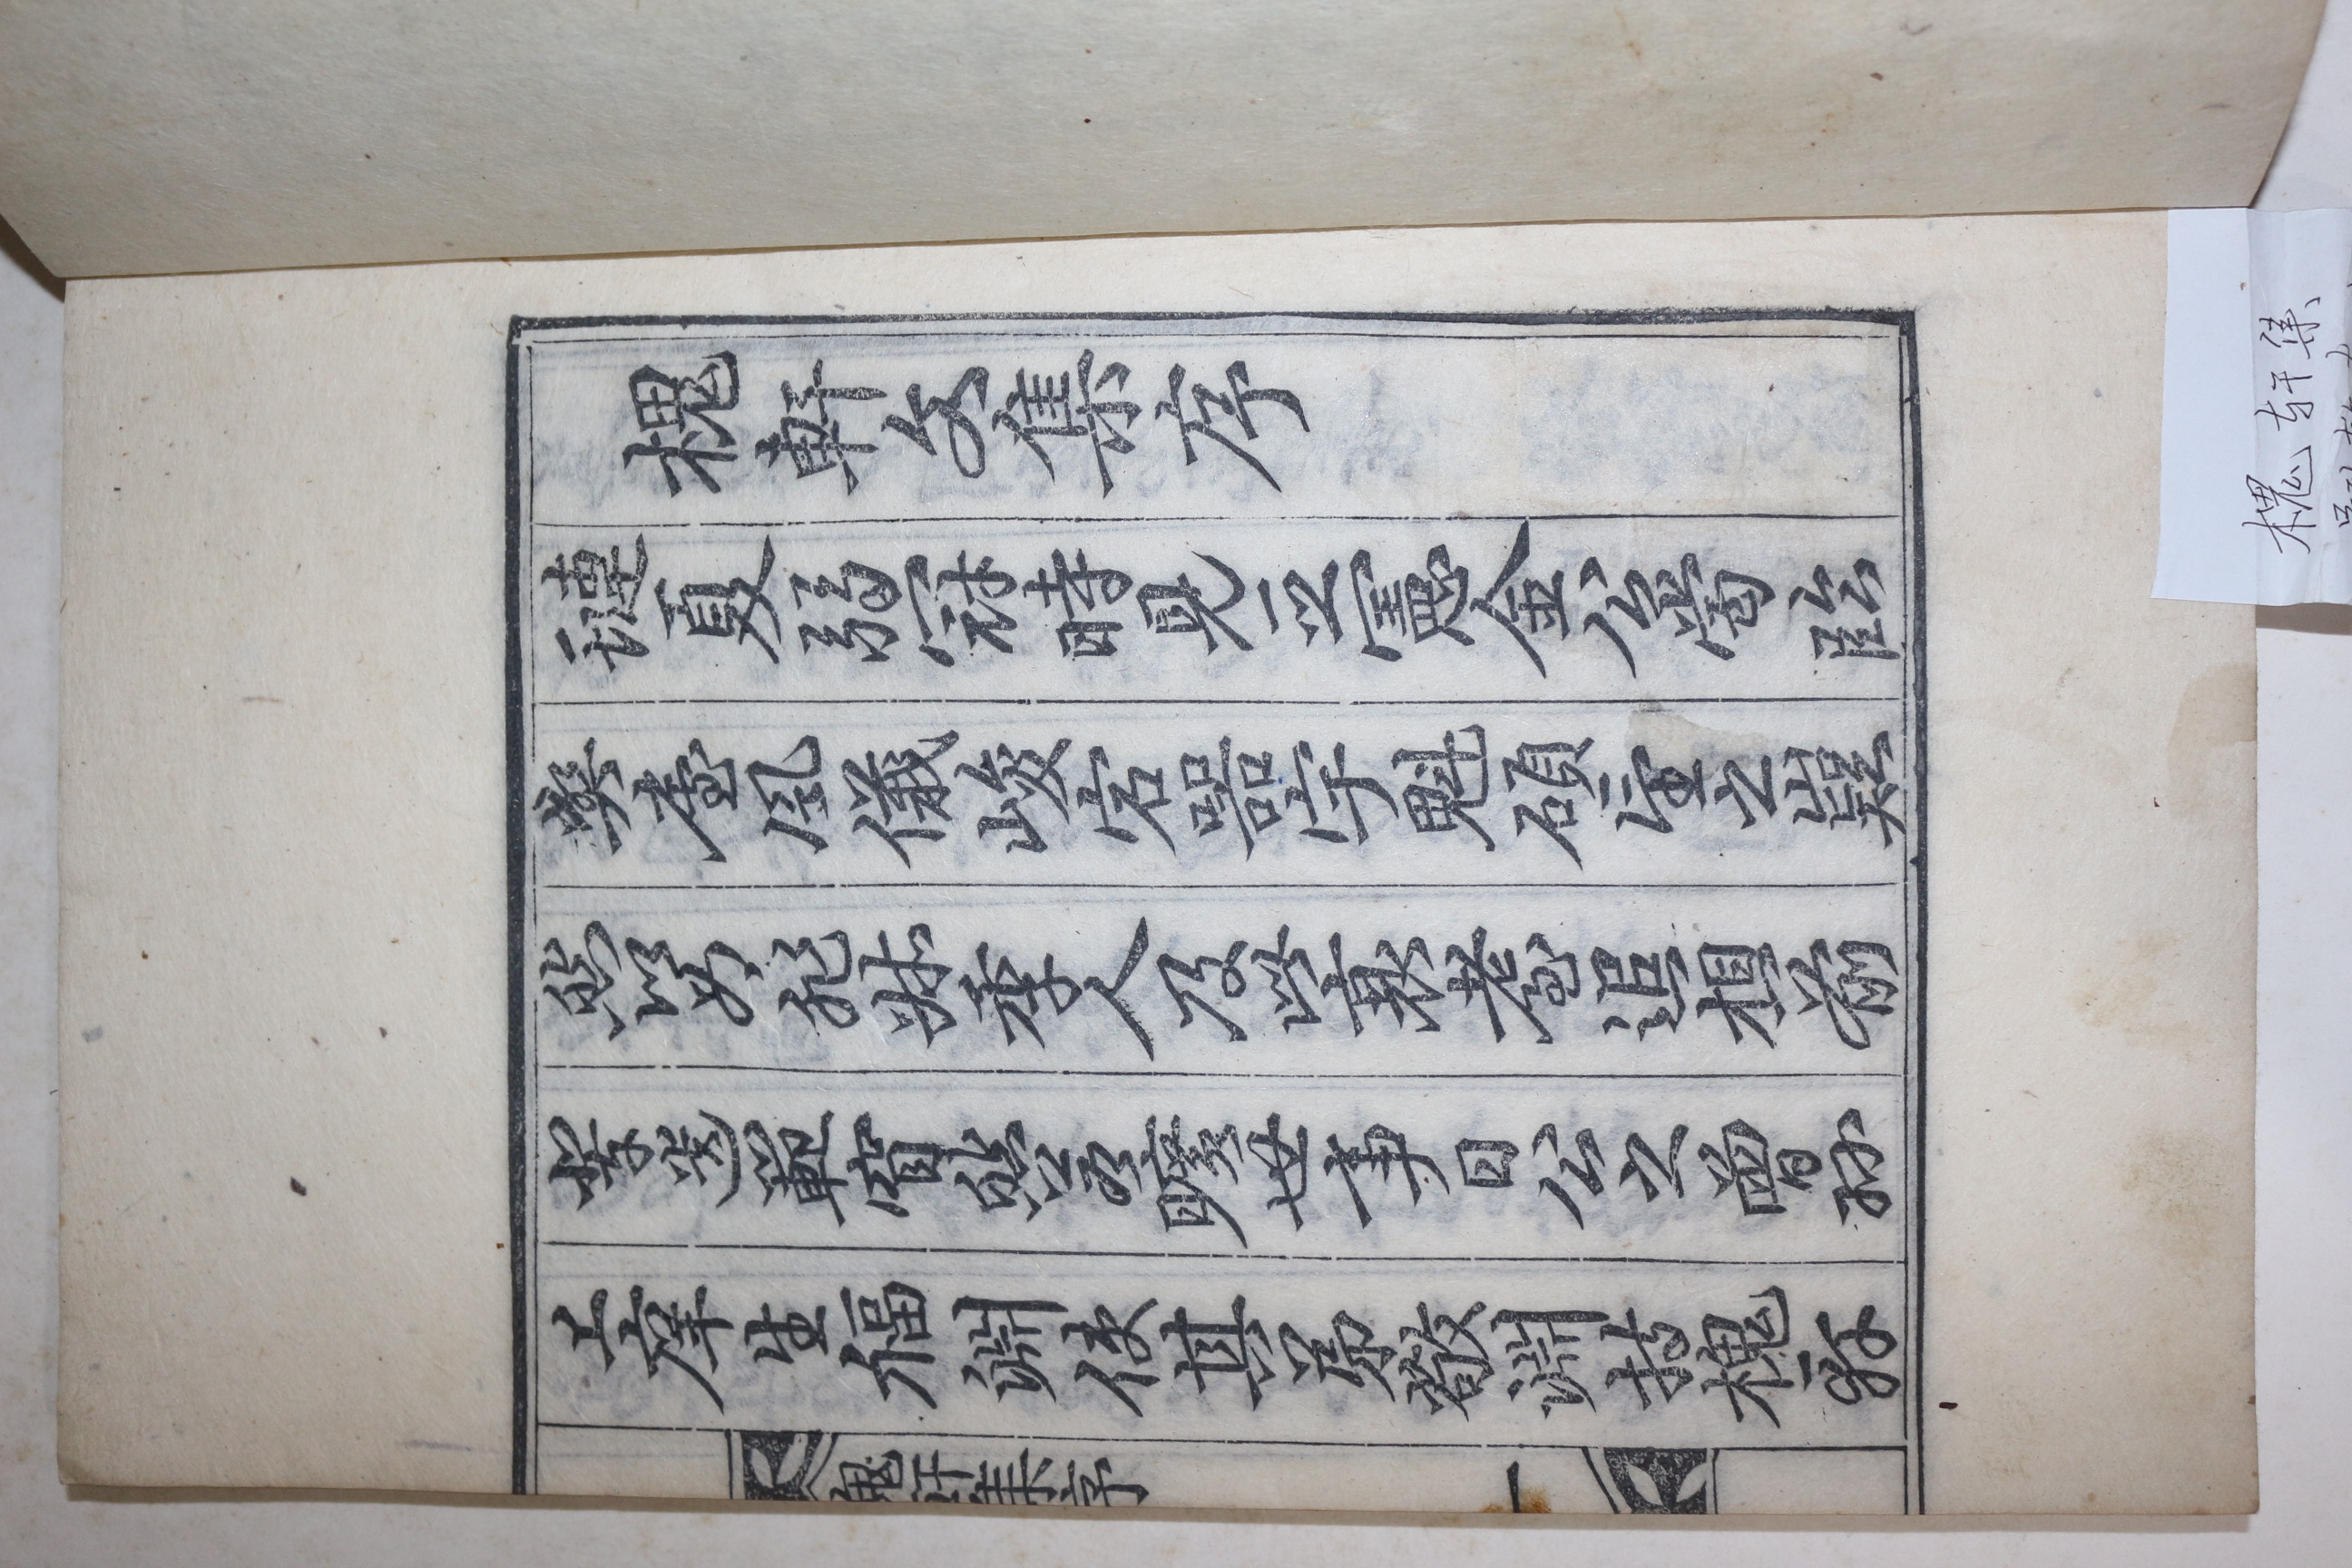 槐軒文集序
璉夏弱冠時見正憲金公當臨
爽臺風儀峻宕器宇魁碩望之嶷
然以如非叔季人及此衰耄追想前
輩遺範窅然若曠世事日公之曾孫
上庠生福淵使其弟敬淵抱槐軒
槐軒集序
一
槐軒集